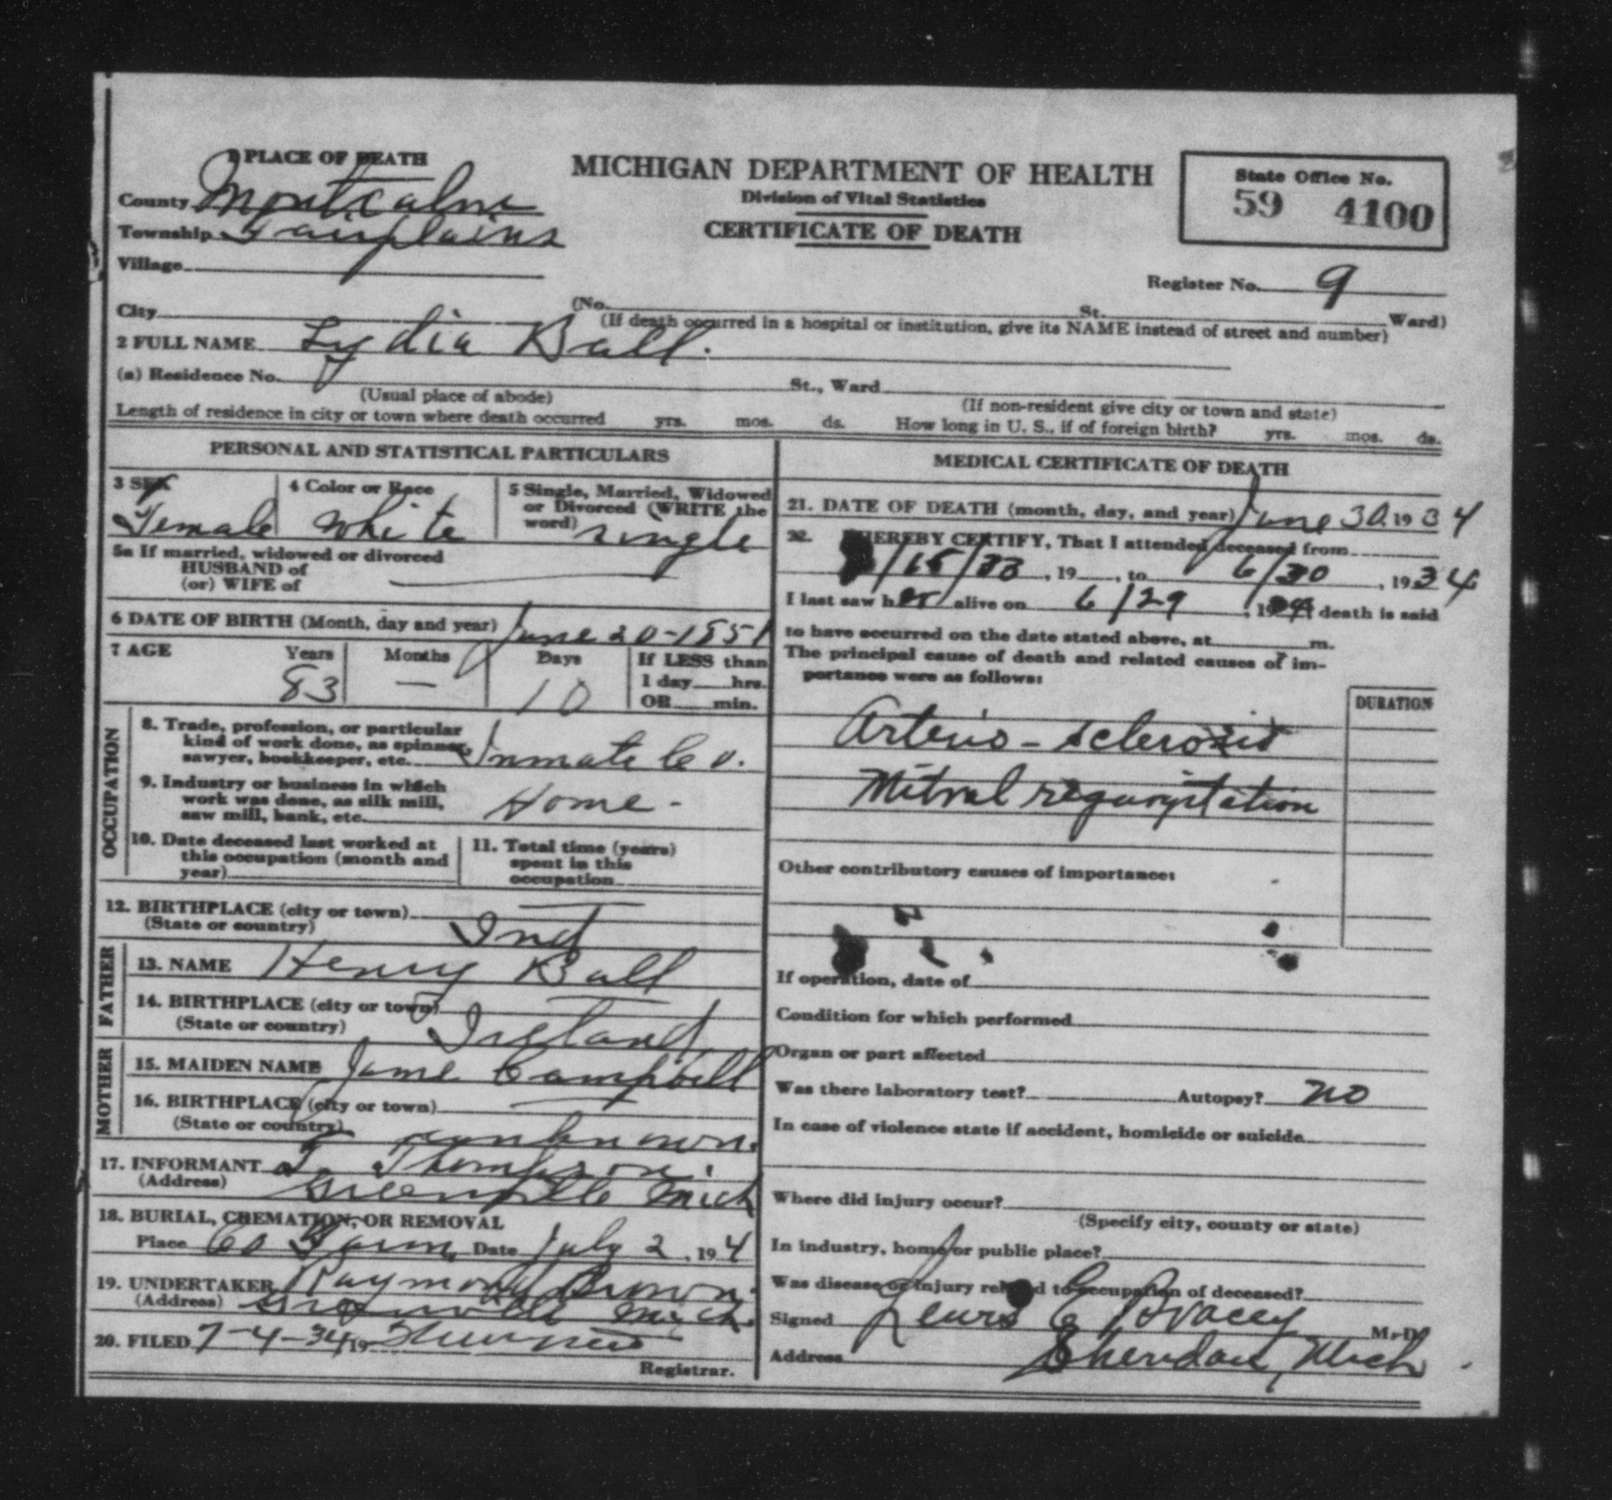 1 PLACE OF DEATH
MICHIGAN DEPARTMENT OF HEALTH
Division of Vital Statistics
CERTIFICATE OF DEATH
State Office No.
59 4100
County Montcalm
Township Fairplains
Village
Register No. 9
City (No. St. Ward)
(If death occurred in a hospital or institution, give its NAME instead of street and number)
2 FULL NAME Lydia Ball.
(a) Residence No. St., Ward
(Usual place of abode) (If non-resident give city or town and state)
Length of residence in city or town where death occurred yrs. mos. ds. How long in U. S., if of foreign birth? yrs. mos. ds.
PERSONAL AND STATISTICAL PARTICULARS
3 SEX Female
4 Color or Race White
5 Single, Married, Widowed
or Divorced (WRITE the
word) single
5a If married, widowed or divorced
HUSBAND of
(or) WIFE of —
6 DATE OF BIRTH (Month, day and year) June 20-1851
7 AGE Years Months Days If LESS than
83 — 10 1 day hrs.
OR min.
OCCUPATION
8. Trade, profession, or particular
kind of work done, as spinner,
sawyer, bookkeeper, etc. Inmate Co.
9. Industry or business in which
work was done, as silk mill,
saw mill, bank, etc. Home -
10. Date deceased last worked at
this occupation (month and
year)
11. Total time (years)
spent in this
occupation
12. BIRTHPLACE (city or town) —
(State or country) Ind
FATHER
13. NAME Henry Ball
14. BIRTHPLACE (city or town) —
(State or country) Ireland
MOTHER
15. MAIDEN NAME Jane Campbell
16. BIRTHPLACE (city or town) —
(State or country) unknown.
17. INFORMANT Thompson.
(Address) Greenville Mich
18. BURIAL, CREMATION, OR REMOVAL
Place Co Farm Date July 2, 194
19. UNDERTAKER Raymond Brown.
(Address) Greenville Mich.
20. FILED 7-4-34, 19
Registrar.
MEDICAL CERTIFICATE OF DEATH
21. DATE OF DEATH (month, day, and year) June 30. 1934
22. I HEREBY CERTIFY, That I attended deceased from
/15/33, 19 , to 6/30, 1934
I last saw her alive on 6/29, 1934 death is said
to have occurred on the date stated above, at m.
The principal cause of death and related causes of im-
portance were as follows:
DURATION
Arterio-sclerosis
Mitral regurgitation
Other contributory causes of importance:
If operation, date of
Condition for which performed
Organ or part affected
Was there laboratory test? Autopsy? no
In case of violence state if accident, homicide or suicide
Where did injury occur?
(Specify city, county or state)
In industry, home or public place?
Was disease or injury related to occupation of deceased?
Signed Lewis E Bracey M. D.
Address Sheridan, Mich.